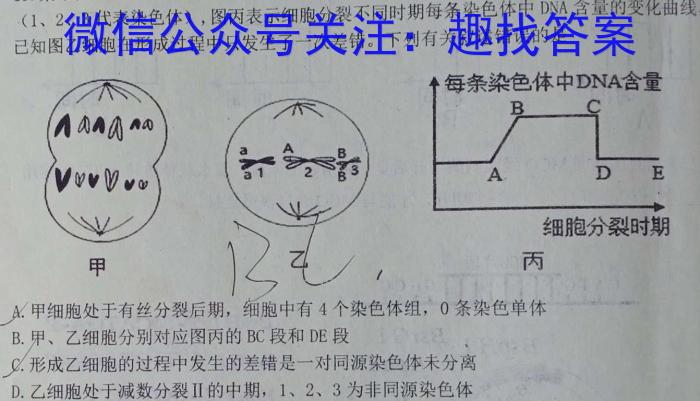 (1、2、3代表染色体),图丙表示细胞分裂不同时期每条染色体中DNA含量的变化曲线
微信公众号关注：趣找答案
已知图乙细胞在形成过程中只发生了一次差错。下列有关
每条染色体中DNA含量
B C
A D E
细胞分裂时期
a A B
a 1 2 B 3
甲 乙 丙
A.甲细胞处于有丝分裂后期，细胞中有4个染色体组，0条染色单体
B.甲、乙细胞分别对应图丙的BC段和DE段
C.形成乙细胞的过程中发生的差错是一对同源染色体未分离
D.乙细胞处于减数分裂Ⅱ的中期，1、2、3为非同源染色体